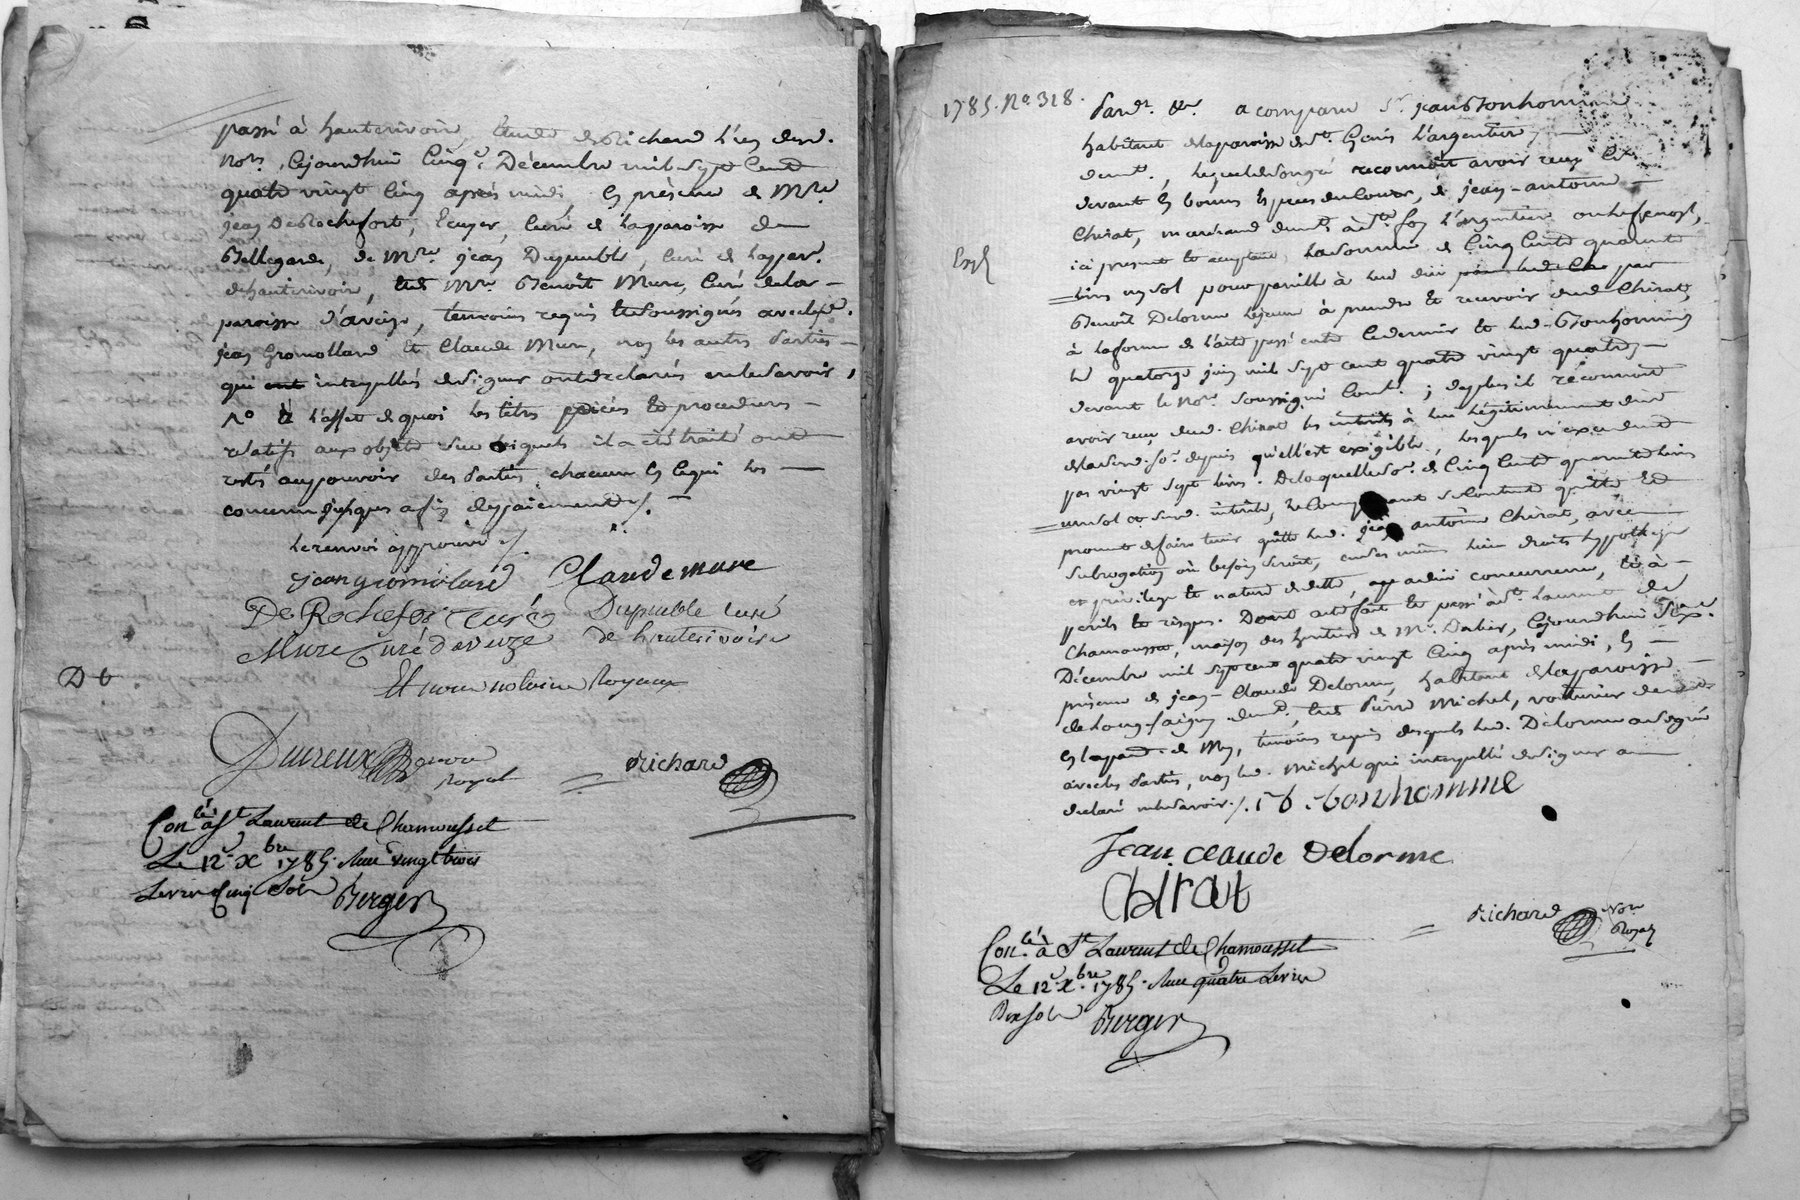 passé à hauterivoire, étude de Richard l'un desd.
Nores, cejourdhui cinqe. Décembre mil sept cent
quatre vingt cinq après midi, en présence de Mre
jean DeRochefort, Ecuyer, curé de la paroisse de
Bellegarde, de Mre. jean Dupuible, curé de lappar.
de hauterivoire, et de Mre. Benoit Mure, Curé de la
paroisse d'aveize, temoins requis et soussignés avec led.
jean Gromollard et Claude Mure, non les autres Parties
qui ont interpellés de signer ont déclarés ne le savoir,
à l'effet de quoi les titres pièces et procedures
relatifs aux objets sur lesquels il a été traité ont
restés au pouvoir des Parties, chacune en ce qui les
concerne jusques afin de payement ./.
le renvoi approuvé ./.
jean gromolard Claude mure
De Rochefort curé Dupuible curé
Mure Curé d'aveize de hauterivoire
Et nous notaires Royaux
Dt
Dutreux notaire
Royal
Richard
Conlé à St Laurent de Chamousset
Le 12e Xbre 1785. Reçu vingt trois
Livres cinq Sols Berger
1785. No. 318.
Pardt. &a. a comparu Sr. jean Bonhomme
habitant de la paroisse de St. Genis l'argentiere,
demt., lequel de son gré reconnoit avoir reçu ci
devant en bonnes espèces de cours, de jean-antoine
Chirat, marchand demt. à Ste foy l'argentiere
ici present et acceptant, la somme de Cinq Cents quarante
Expé
livres un sol pour pareille à lui par
Benoit Delorme lejeune à prendre et recevoir dud. Chirat,
à la forme de l'acte passé entre ce dernier et led. Bonhomme
le quatorze juin mil sept cent quatre vingt quatre,
devant le Nore. soussigné Cont.; de plus il réconnoit
avoir reçu dud. Chirat les intérêts à lui légitimement dus
de lad. so. depuis qu'elle est exigible, lesquels n'excedent
pas vingt sept livres. De laquelle so. de Cinq Cents quarante livres
un sol et sesd. intérêts, le Comparant se contente quitte et
promet de faire tenir quitte led. jean antoine Chirat, avec
subrogation où besoin seroit, en ses mêmes lieu droits hypotheque
et privilege et nature de dette, concurrence, et à
perils et risques. Dont acte fait et passé à St. Laurent de
Chamousset, maison des heritiers de Mr. Dabier, cejourdhui Sixe.
Décembre mil sept cent quatre vingt cinq après midi, en
présence de jean-Claude Delorme, habitant de la paroisse
de Longessaigne demt., et de Pierre Michel, voiturier demt.
en la par. de Mey, temoins requis desquels led. Delorme a signé
avec les Parties, non led. Michel qui interpellé de signer a
déclaré ne le savoir ./. Bonhomme
Jean Claude Delorme
Chirat
Richard Nore
Royal
Conlé. à St Laurent de Chamousset
Le 12e Xbre. 1785. Reçu quatre Livres
Dix Sols Berger